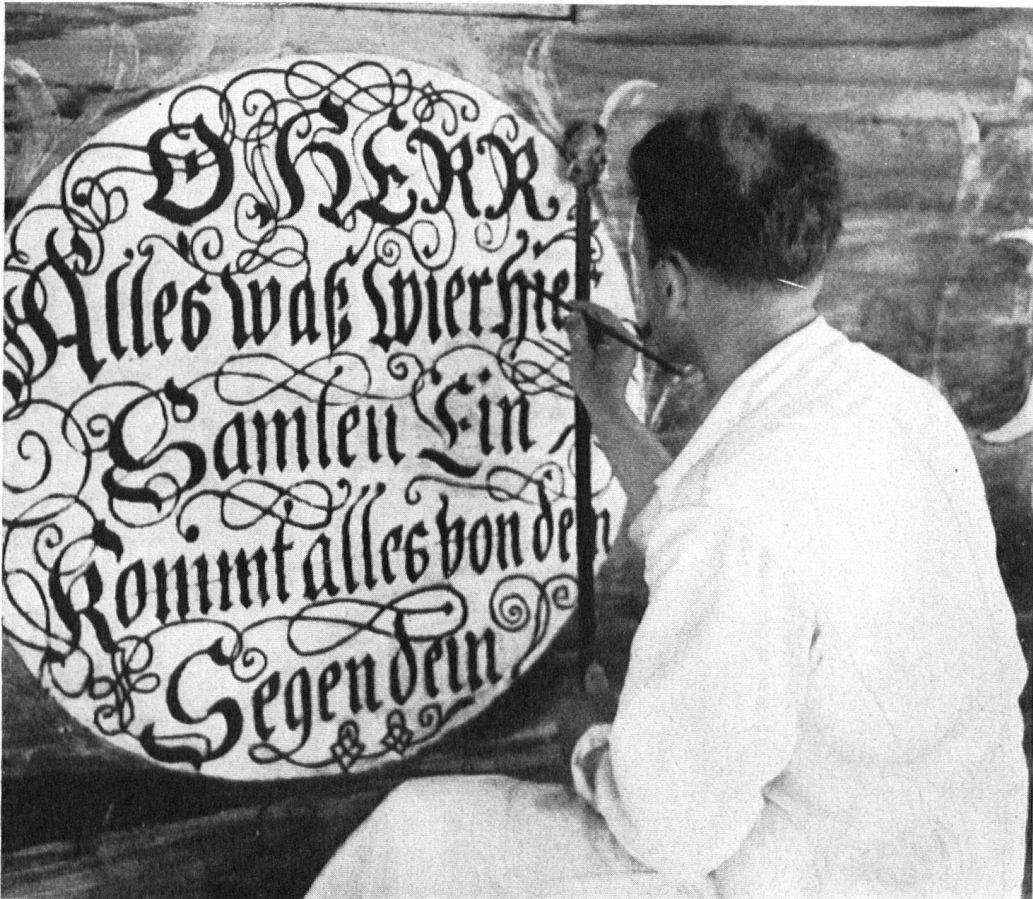 O HERR
Alles waß wier hie
Samlen Ein
Kommt alles von dem
Segen dein